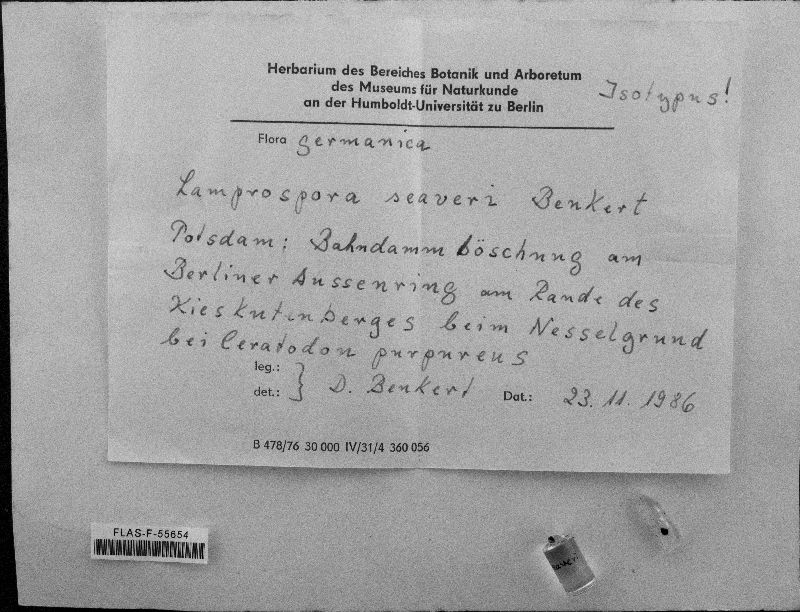 Herbarium des Bereiches Botanik und Arboretum
des Museums für Naturkunde
an der Humboldt-Universität zu Berlin
Isotypus!
Flora germanica
Lamprospora seaveri Benkert
Potsdam: Bahndammböschung am
Berliner Aussenring am Rande des
Kieskutenberges beim Nesselgrund
bei Ceratodon purpureus
leg.:
det.: } D. Benkert Dat.: 23. 11. 1986
B 478/76 30 000 IV/31/4 360 056
FLAS-F-55654